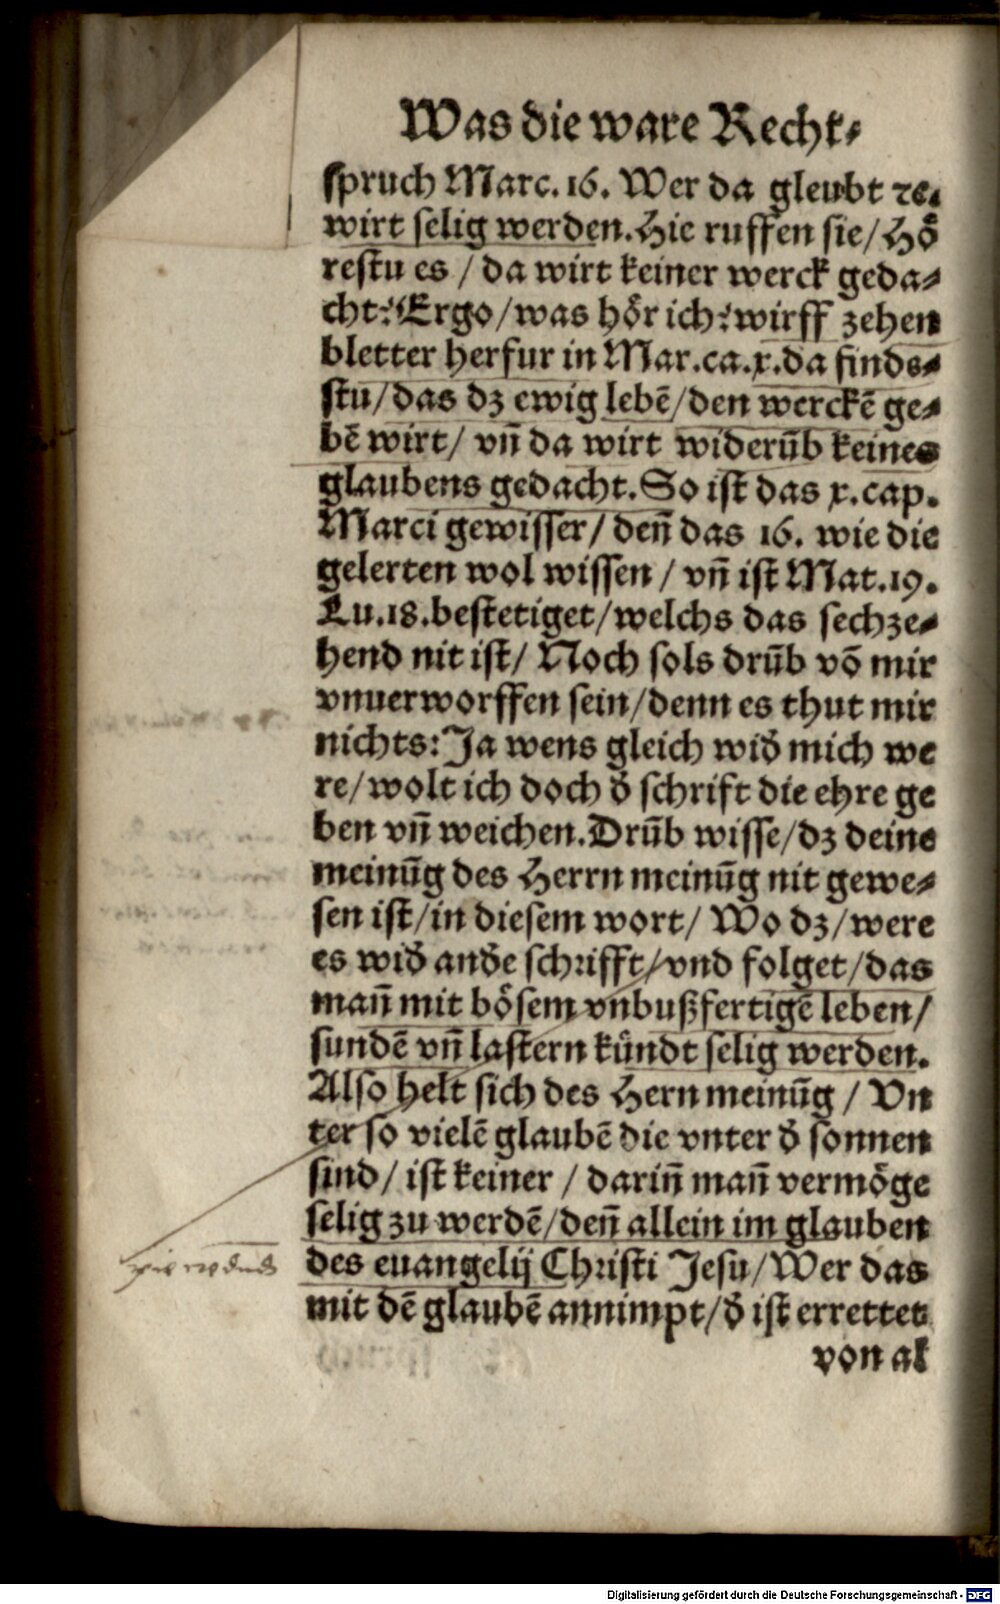 Was die ware Recht⸗
spruch Marc. 16. Wer da gleubt ꝛc.
wirt selig werden. Hie ruffen sie / Hoͤ
restu es / da wirt keiner werck geda⸗
cht? Ergo / was hoͤr ich? wirff zehen
bletter herfur in Mar. ca. x. da finds⸗
stu / das dz ewig lebē / den werckē ge⸗
bē wirt / vn̄ da wirt widerūb keines
glaubens gedacht. So ist das x. cap.
Marci gewisser / den̄ das 16. wie die
gelerten wol wissen / vn̄ ist Mat. 19.
Lu. 18. bestetiget / welchs das sechze⸗
hend nit ist / Noch sols drūb vō mir
vnuerworffen sein / denn es thut mir
nichts: Ja wens gleich wid̕ mich we
re / wolt ich doch d̕ schrift die ehre ge
ben vn̄ weichen. Drūb wisse / dz deine
meinūg des Herrn meinūg nit gewe⸗
sen ist / in diesem wort / Wo dz / were
es wid̕ and̕e schrifft / vnd folget / das
man̄ mit boͤsem vnbußfertigē leben /
sundē vn̄ lastern kuͤndt selig werden.
Also helt sich des Hern meinūg / Vn
ter so vielē glaubē die vnter d̕ sonnen
sind / ist keiner / darin̄ man̄ vermoͤge
selig zu werdē / den̄ allein im glauben
des euangelij Christi Jesu / Wer das
mit dē glaubē annimpt / d̕ ist errettet
von al
Digitalisierung gefördert durch die Deutsche Forschungsgemeinschaft - DFG